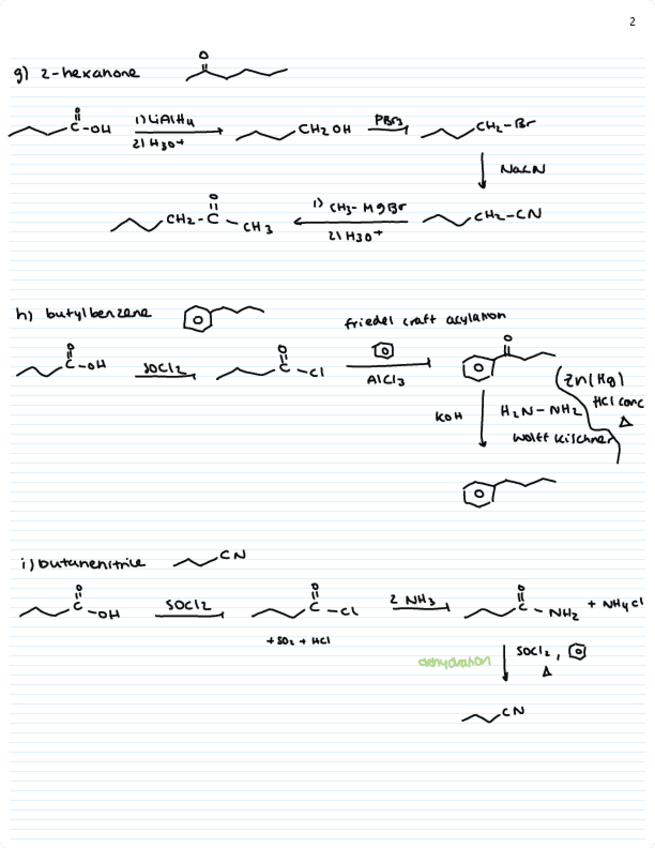 2
g) 2-hexanone
O
O
C-OH
1) LiAlH4
2) H3O+
CH2OH
PBr3
CH2-Br
NaCN
CH2-CN
1) CH3-MgBr
2) H3O+
O
CH2-C-CH3
h) butylbenzene
friedel craft acylation
O
C-OH
SOCl2
O
C-Cl
AlCl3
O
(Zn(Hg)
HCl conc
Δ
KOH
H2N-NH2
Wolff Kischner
i) butanenitrile
CN
O
C-OH
SOCl2
O
C-Cl
+ SO2 + HCl
2 NH3
O
C-NH2
+ NH4Cl
dehydration
SOCl2,
Δ
CN